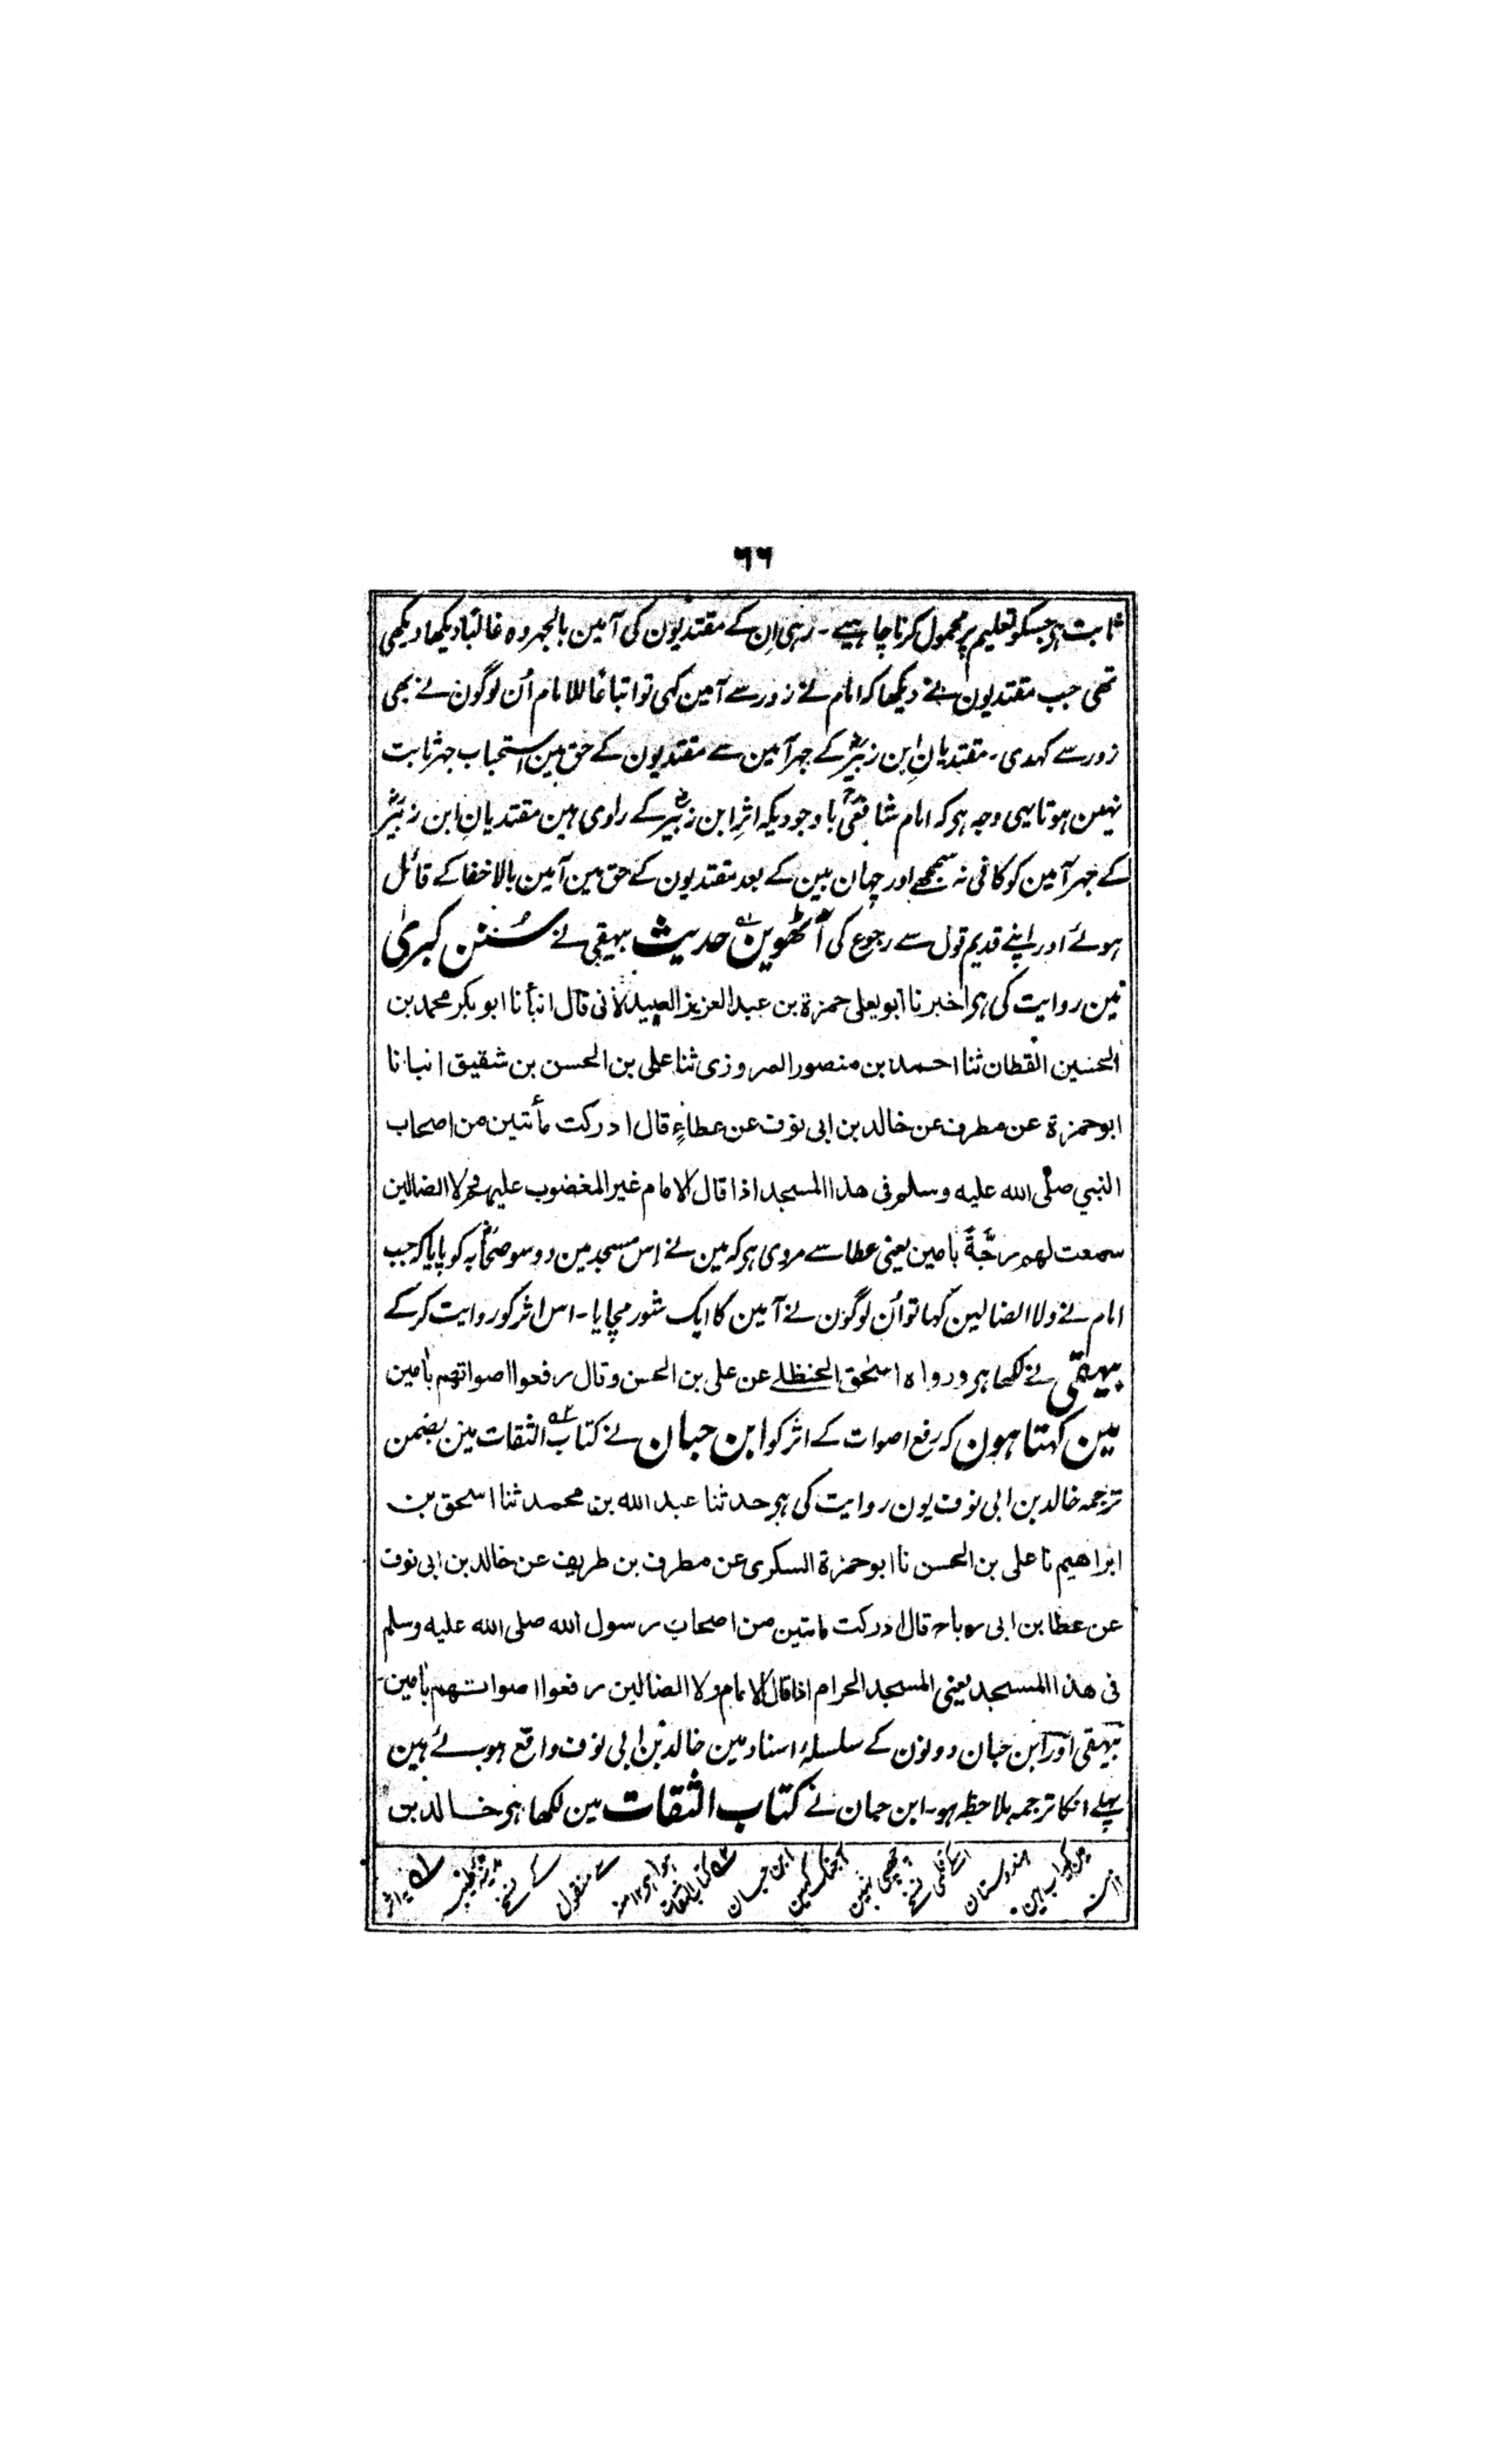 ٦٦
ثابت ہی جسکو تعلیم پر محمول کرنا چاہیے ۔ رہی ان کے مقتدیون کی آمین بالجہر وہ غالبًا دیکھا دیکھی
تھی جب مقتدیون نے دیکھا کہ امام نے زور سے آمین کہی تو اتباعًا للامام اُن لوگون نے بھی
زور سے کہدی ۔ مقتدیانِ ابن زبیرؓ کے جہر آمین سے مقتدیون کے حق مین استحباب جہر ثابت
نہین ہوتا یہی وجہ ہی کہ امام شافعیؒ باوجودیکہ اثرِ ابن زبیرؓ کے راوی ہین مقتدیانِ ابن زبیرؓ
کے جہر آمین کو کافی نہ سمجھے اور چھان بین کے بعد مقتدیون کے حق مین آمین بالاخفا کے قائل
ہوئے اور اپنے قدیم قول سے رجوع کی آٹھوین حدیث بیہقی نے سُنن کبریٰ
مین روایت کی ہی اخبرنا ابو یعلی حمزۃ بن عبد العزیز الصیدلانی قال انبأنا ابو بکر محمد بن
الحسین القطان ثنا احمد بن منصور المروزی ثنا علی بن الحسن بن شقیق انبانا
ابو حمزۃ عن مطرف عن خالد بن ابی نوف عن عطاءٍ قال ادرکت مأتین من اصحاب
النبی صلی اللہ علیہ وسلم فی ھذا المسجد اذا قال الامام غیر المغضوب علیھم ولا الضالین
سمعت لھم رجَّةً بامین یعنی عطا سے مروی ہی کہ مین نے اس مسجد مین دو سو صحابہ کو پایا کہ جب
امام نے ولا الضالین کہا تو اُن لوگون نے آمین کا ایک شور مچایا ۔ اس اثر کو روایت کر کے
بیہقی نے لکھا ہی و رواہ اسحٰق الحنظلے عن علی بن الحسن وقال رفعوا اصواتھم بآمین
مین کہتا ہون کہ رفع اصوات کے اثر کو ابن حبان نے کتاب الثقات مین بضمن
ترجمہ خالد بن ابی نوف یون روایت کی ہی حدثنا عبد اللہ بن محمد ثنا اسحق بن
ابراھیم نا علی بن الحسن نا ابو حمزۃ السکری عن مطرف بن طریف عن خالد بن ابی نوف
عن عطا بن ابی رباح قال ادرکت مأتین من اصحاب رسول اللہ صلی اللہ علیہ وسلم
فی ھذا المسجد یعنی المسجد الحرام اذا قال الامام ولا الضالین رفعوا اصواتھم بآمین ۔
بیہقی اور ابن حبان دونون کے سلسلۂ اسناد مین خالد بن ابی نوف واقع ہوئے ہین
پہلے انکا ترجمہ ملاحظہ ہو ۔ ابن حبان نے کتاب الثقات مین لکھا ہی خالد بن
یہ اثر
کے نسخے
سے منقول
ہوا ہی ۱۲ منہ
کتاب الثقات
ابن حبان
ابتک کہین
چھپی نہین
اسکے قلمی نسخے
ہندوستان
مین کمیاب ہین ۔
۱۲ منہ